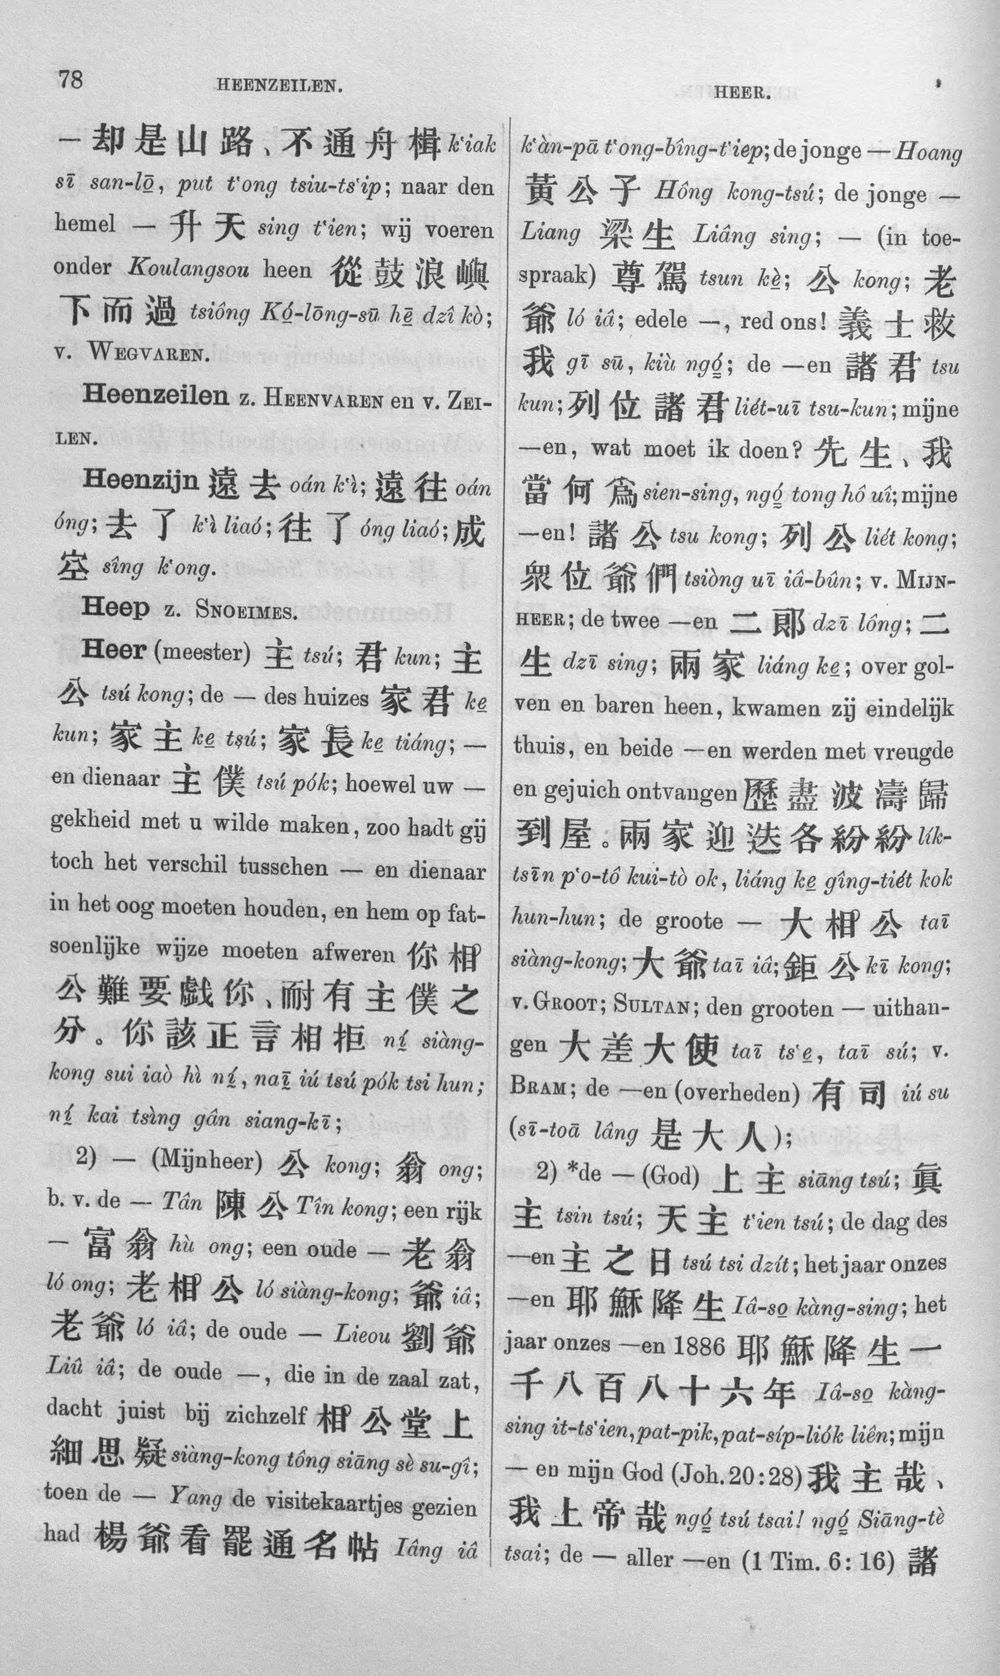 78
HEENZEILEN.
HEER.
— 却是山路、不通舟楫 k‘iak
sī san-lō͘, put t‘ong tsiu-ts‘ip; naar den
hemel — 升天 sing t‘ien; wij voeren
onder Koulangsou heen 從鼓浪嶼
下而過 tsiông Kó͘-lōng-sū hē dzî kò;
v. WEGVAREN.
Heenzeilen z. HEENVAREN en v. ZEI-
LEN.
Heenzijn 遠去 oán k‘ì; 遠往 oán
óng; 去了 k‘ì liaó; 往了 óng liaó; 成
空 sîng k‘ong.
Heep z. SNOEIMES.
Heer (meester) 主 tsú; 君 kun; 主
公 tsú kong; de — des huizes 家君 ke̲
kun; 家主 ke̲ tsú; 家長 ke̲ tiáng; —
en dienaar 主僕 tsú pók; hoewel uw —
gekheid met u wilde maken, zoo hadt gij
toch het verschil tusschen — en dienaar
in het oog moeten houden, en hem op fat-
soenlijke wijze moeten afweren 你相
公難要戲你、耐有主僕之
分。你該正言相拒 ní̲ siàng-
kong sui iaò hì ní̲, naī̲ iú tsú pók tsi hun;
ní̲ kai tsìng gân siang-kī;
2) — (Mijnheer) 公 kong; 翁 ong;
b. v. de — Tân 陳公 Tîn kong; een rijk
— 富翁 hù ong; een oude — 老翁
ló ong; 老相公 ló siàng-kong; 爺 iâ;
老爺 ló iâ; de oude — Lieou 劉爺
Liû iâ; de oude —, die in de zaal zat,
dacht juist bij zichzelf 相公堂上
細思疑 siàng-kong tông siāng sè su-gî;
toen de — Yang de visitekaartjes gezien
had 楊爺看罷通名帖 Iâng iâ
k‘àn-pā t‘ong-bîng-t‘iep; de jonge — Hoang
黃公子 Hông kong-tsú; de jonge —
Liang 梁生 Liâng sing; — (in toe-
spraak) 尊駕 tsun kè̲; 公 kong; 老
爺 ló iâ; edele —, red ons! 義士救
我 gī sū, kiù ngó̲; de —en 諸君 tsu
kun; 列位諸君 liét-uī tsu-kun; mijne
—en, wat moet ik doen? 先生、我
當何爲 sien-sing, ngó̲ tong hô uî; mijne
—en! 諸公 tsu kong; 列公 liét kong;
衆位爺們 tsiòng uī iâ-bûn; v. MIJN-
HEER; de twee —en 二郎 dzī lông; 二
生 dzī sing; 兩家 liáng ke̲; over gol-
ven en baren heen, kwamen zij eindelijk
thuis, en beide —en werden met vreugde
en gejuich ontvangen 歷盡波濤歸
到屋。兩家迎迭各紛紛 lík-
tsīn p‘o-tô kui-tò ok, liáng ke̲ gîng-tiét kok
hun-hun; de groote — 大相公 taī
siàng-kong; 大爺 taī iâ; 鉅公 kī kong;
v. GROOT; SULTAN; den grooten — uithan-
gen 大差大使 taī ts‘e̲, taī sú; v.
BRAM; de —en (overheden) 有司 iú su
(sī-toā lâng 是大人);
2) *de — (God) 上主 siāng tsú; 眞
主 tsin tsú; 天主 t‘ien tsú; de dag des
—en 主之日 tsú tsi dzít; het jaar onzes
—en 耶穌降生 Iâ-so̲ kàng-sing; het
jaar onzes —en 1886 耶穌降生一
千八百八十六年 Iâ-so̲ kàng-
sing it-ts‘ien, pat-pik, pat-síp-liók liên; mijn
— en mijn God (Joh. 20:28) 我主哉、
我上帝哉 ngó̲ tsú tsai! ngó̲ Siāng-tè
tsai; de — aller —en (1 Tim. 6: 16) 諸